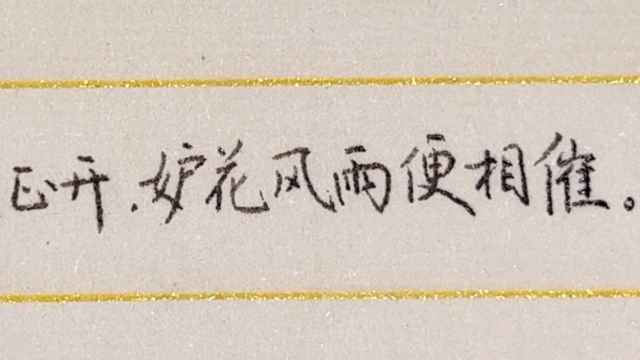 正开，妒花风雨便相催。